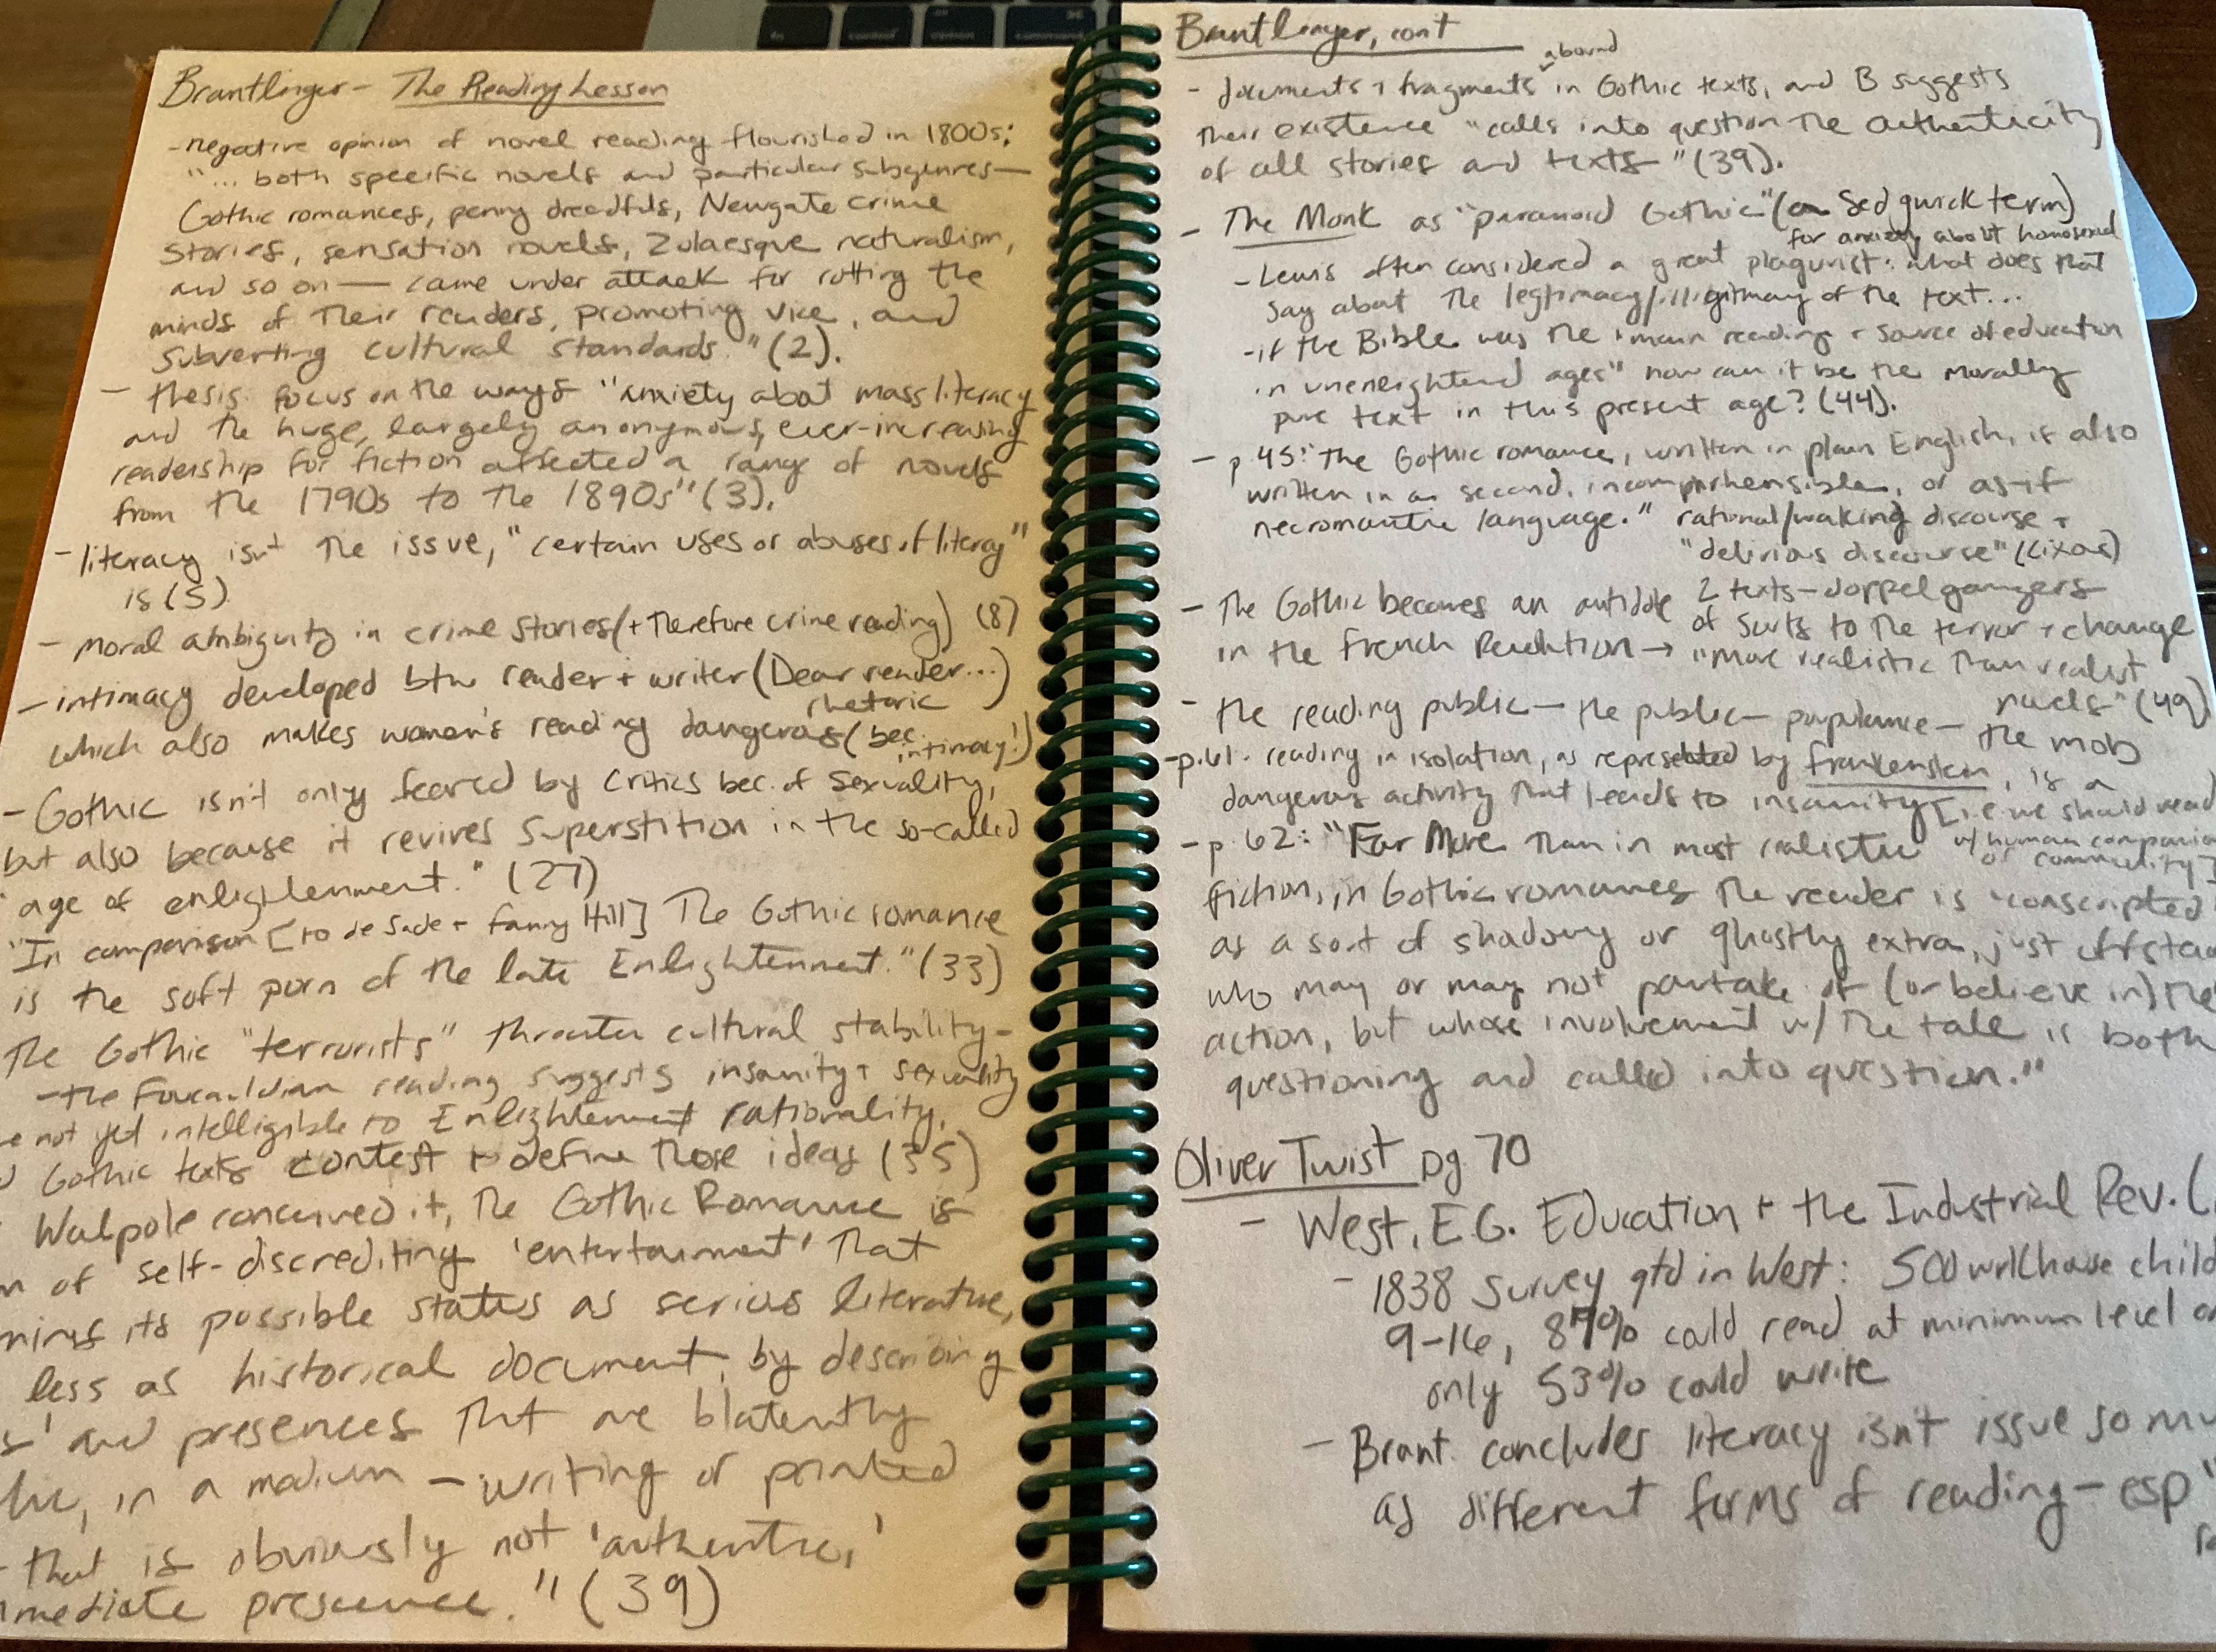 Brantlinger - The Reading Lesson
- negative opinion of novel reading flourished in 1800s:
"... both specific novels and particular subgenres—
Gothic romances, penny dreadfuls, Newgate crime
stories, sensation novels, Zolaesque naturalism,
and so on — came under attack for rotting the
minds of their readers, promoting vice, and
subverting cultural standards." (2).
- thesis: focus on the ways "anxiety about mass literacy
and the huge, largely anonymous, ever-increasing
readership for fiction affected a range of novels
from the 1790s to the 1890s" (3).
- literacy isn't the issue, "certain uses or abuses of literacy"
is (5)
- moral ambiguity in crime stories (+ therefore crime reading) (8)
- intimacy developed btw reader + writer (Dear reader...)
rhetoric
which also makes women's reading dangerous (bec.
intimacy!)
- Gothic isn't only feared by critics bec. of sexuality,
but also because it revives superstition in the so-called
age of enlightenment." (27)
"In comparison [to de Sade + Fanny Hill] The Gothic romance
is the soft porn of the late Enlightenment." (33)
The Gothic "terrorists" threaten cultural stability -
- the Foucauldian reading suggests insanity + sexuality
not yet intelligible to Enlightenment rationality,
Gothic texts contest + define those ideas (35)
Walpole conceived it, The Gothic Romance is
of self-discrediting 'entertainment' that
its possible status as serious literature,
less as historical document, by describing
and presences that are blatently
in a medium - writing or printed
that is obviously not 'authentic,'
presence." (39)
Brantlinger, cont
abound
- documents + fragments in Gothic texts, and B suggests
their existence "calls into question the authenticity
of all stories and texts" (39).
- The Monk as "paranoid Gothic" (a Sedgwick term)
for anxiety about homosexual
- Lewis often considered a great plagurist: what does that
say about the legtimacy/illigitmacy of the text...
- if the Bible was the "main reading + source of education
in unenlightened ages" how can it be the morally
pure text in this present age? (44).
- p. 45: "The Gothic romance, written in plain English, is also
written in a second, incomprehensible, or as-if
necromantic language." rational/waking discourse +
"delirious discourse" (Cixous)
2 texts - doppelgangers
- The Gothic becomes an antidote of sorts to the terror + change
in the French Revolution → "more realistic than realist
novels" (49)
- the reading public — the public — populance — the mob
- p. 61. reading in isolation, as represented by Frankenstein, is a
dangerous activity that leads to insanity [i.e. we should read
w/ human
or community]
- p. 62: "Far More than in most realistic
fiction, in Gothic romances the reader is 'conscripted'
as a sort of shadowy or ghostly extra, just
who may or may not partake of (or believe in) the
action, but whose involvement w/ the tale is both
questioning and called into question."
Oliver Twist pg 70
- West, E.G. Education + the Industrial Rev. (
- 1838 survey qtd in West: 500 wrkhouse
9-16, 87% could read at minimum level
only 53% could write
- Brant. concludes literacy isn't issue so
as different forms of reading - esp "